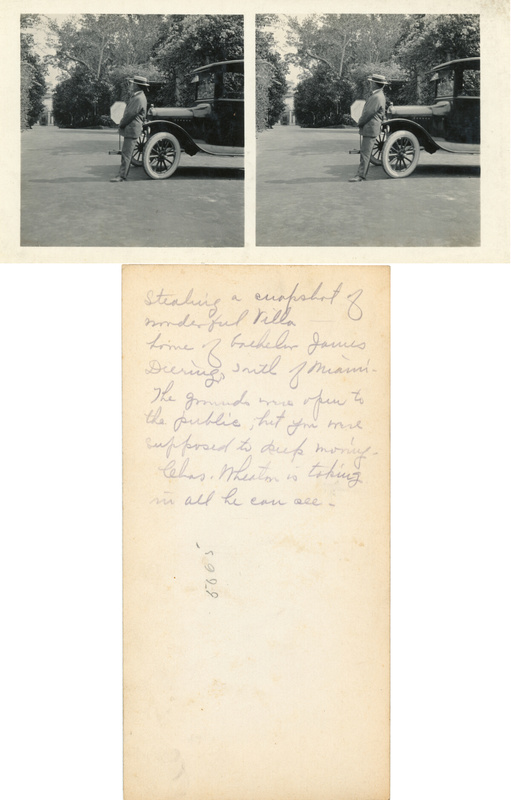 Stealing a snapshot of
wonderful Villa —
home of bachelor James
Deering, south of Miami.
The grounds were open to
the public, but you were
supposed to keep moving.
Chas. Wheaton is taking
in all he can see.
5665